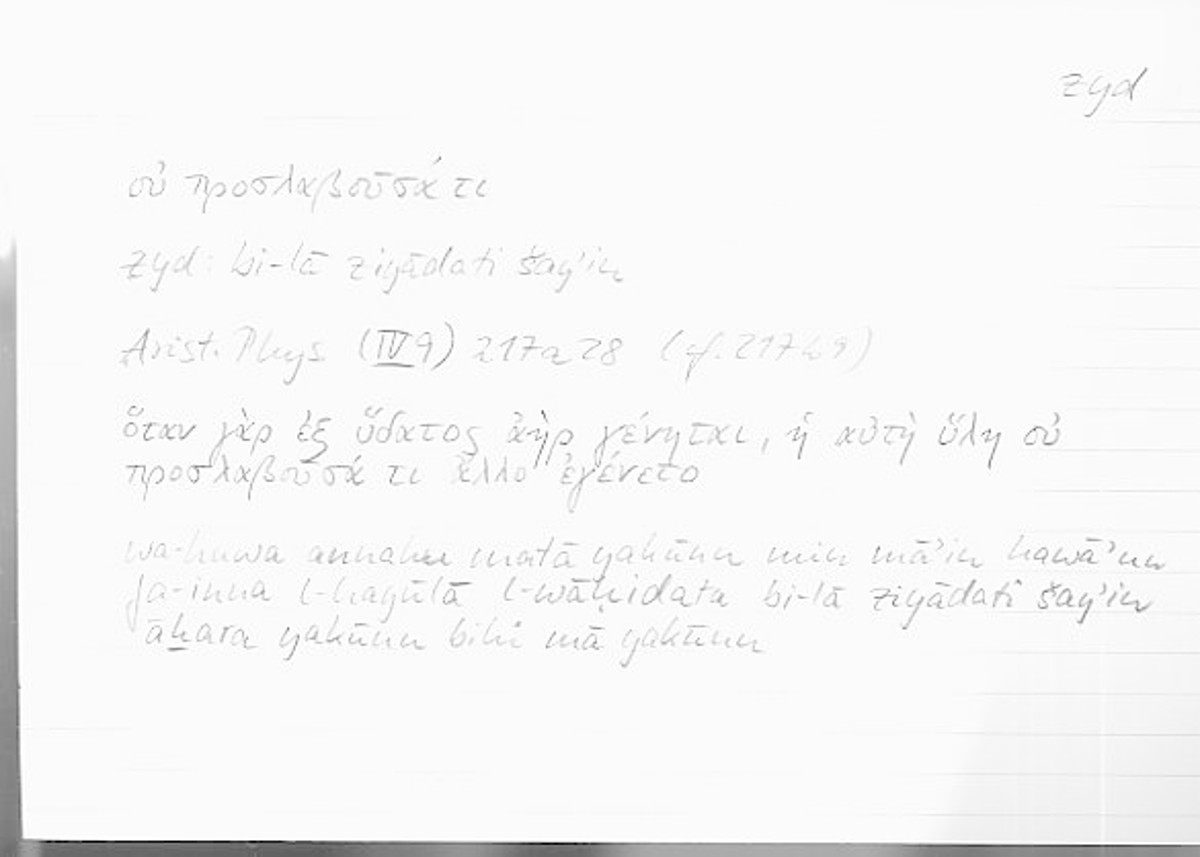 zyd
οὐ προσλαβοῦσά τι
zyd: bi-lā ziyādati šay'in
Arist. Phys. (IV 9) 217a28 (cf. 217b9)
ὅταν γὰρ ἐξ ὕδατος ἀὴρ γένηται, ἡ αὐτὴ ὕλη οὐ
προσλαβοῦσά τι ἄλλο ἐγένετο
wa-huwa annahu matā yakūnu min mā'in hawā'un
fa-inna l-hayūlā l-wāḥidata bi-lā ziyādati šay'in
āẖara yakūnu bihī mā yakūnu